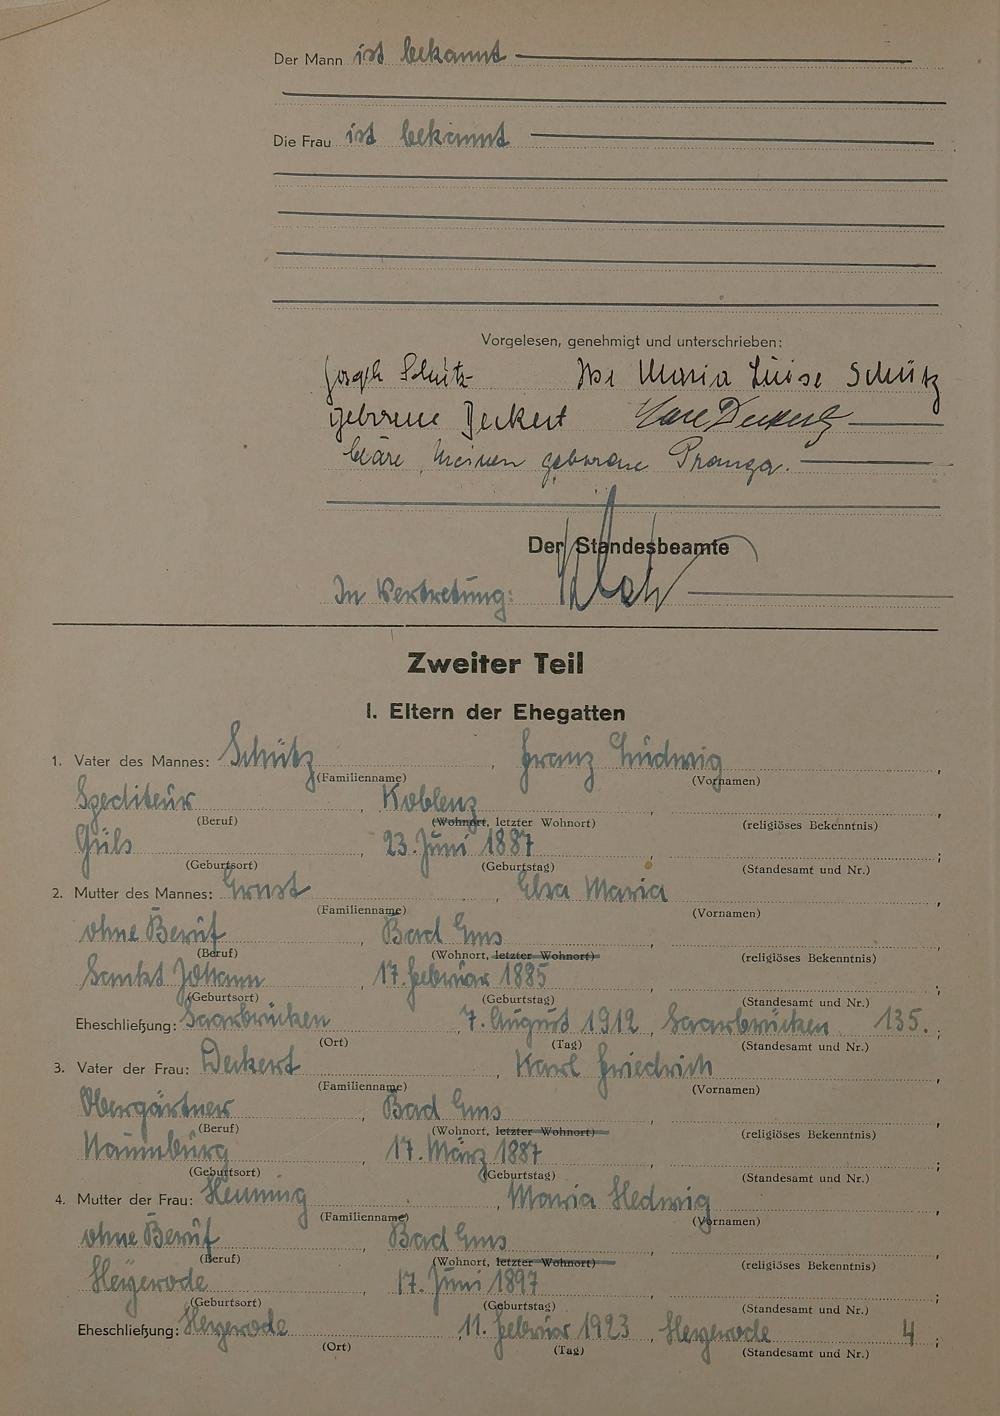 Der Mann ist bekannt
Die Frau ist bekannt
Vorgelesen, genehmigt und unterschrieben:
Joseph Schütz Ilse Maria Luise Schütz
geborene Deckert Deckert
geborene
Der Standesbeamte
In Vertretung:
Zweiter Teil
I. Eltern der Ehegatten
1. Vater des Mannes: Schütz, Franz Ludwig,
(Familienname) (Vornamen)
Spediteur, Koblenz,
(Beruf) (Wohnort, letzter Wohnort) (religiöses Bekenntnis)
Güls, 23. Juni 1887, ;
(Geburtsort) (Geburtstag) (Standesamt und Nr.)
2. Mutter des Mannes: Ernst, Elsa Maria,
(Familienname) (Vornamen)
ohne Beruf, Bad Ems,
(Beruf) (Wohnort, letzter Wohnort) (religiöses Bekenntnis)
Sankt Johann, 17. Februar 1885, ;
(Geburtsort) (Geburtstag) (Standesamt und Nr.)
Eheschließung: Saarbrücken, 7. August 1912, Saarbrücken 135. ;
(Ort) (Tag) (Standesamt und Nr.)
3. Vater der Frau: Deckert, Karl Friedrich,
(Familienname) (Vornamen)
Obergärtner, Bad Ems,
(Beruf) (Wohnort, letzter Wohnort) (religiöses Bekenntnis)
Naumburg, 17. März 1887, ;
(Geburtsort) (Geburtstag) (Standesamt und Nr.)
4. Mutter der Frau: Henning, Maria Hedwig,
(Familienname) (Vornamen)
ohne Beruf, Bad Ems,
(Beruf) (Wohnort, letzter Wohnort) (religiöses Bekenntnis)
Heyerode, 17. Juni 1897, ;
(Geburtsort) (Geburtstag) (Standesamt und Nr.)
Eheschließung: Heyerode, 11. Februar 1923, Heyerode 4 ;
(Ort) (Tag) (Standesamt und Nr.)